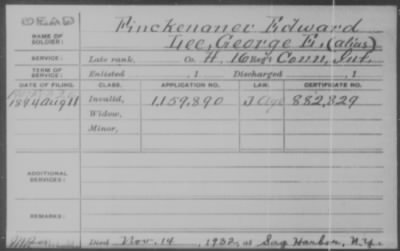 DEAD
NAME OF SOLDIER: Finckenaner Edward
Lee, George E. (alias)
SERVICE: Late rank, Co. H, 16 Reg't Conn, Inf.
TERM OF SERVICE: Enlisted , 1 Discharged , 1
DATE OF FILING. CLASS. APPLICATION NO. LAW. CERTIFICATE NO.
1894 Aug 11 Invalid, 1,159,890 882,829
Widow,
Minor,
ADDITIONAL SERVICES:
REMARKS:
Died Nov. 14, 1932, at Sag Harbor, N.Y.